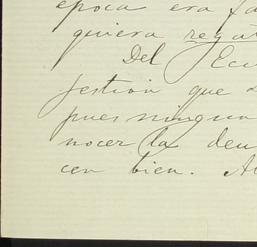 epoca era fa
quiera rega
Del Ecu
gestion que
pues ningun
nocer la deu
cen bien. A